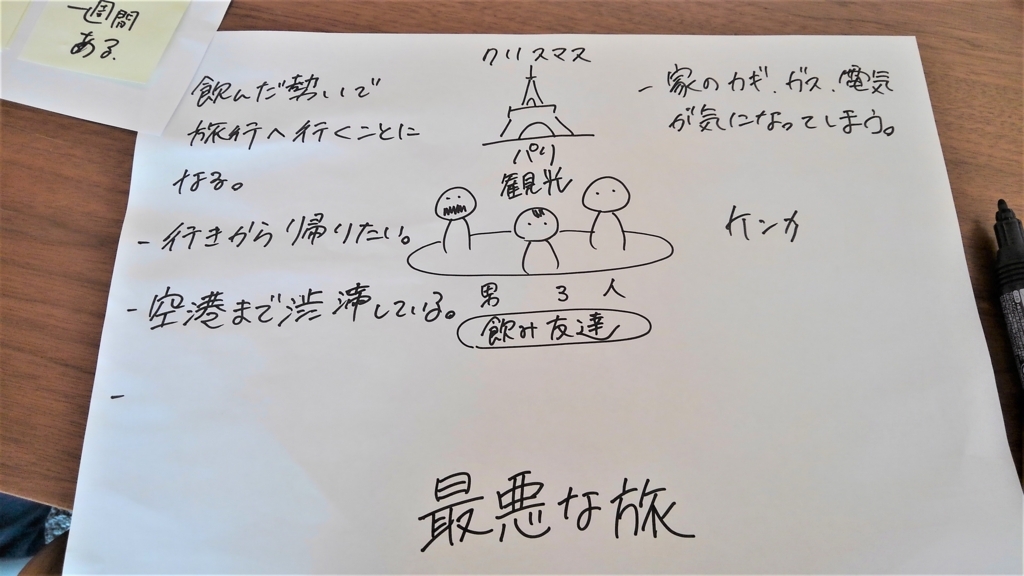 一週間
ある。
クリスマス
パリ
観光
飲んだ勢いで
旅行へ行くことに
なる。
- 行きから帰りたい。
- 空港まで渋滞している。
-
男 3 人
飲み友達
- 家のカギ、ガス、電気
が気になってしまう。
ケンカ
最悪な旅